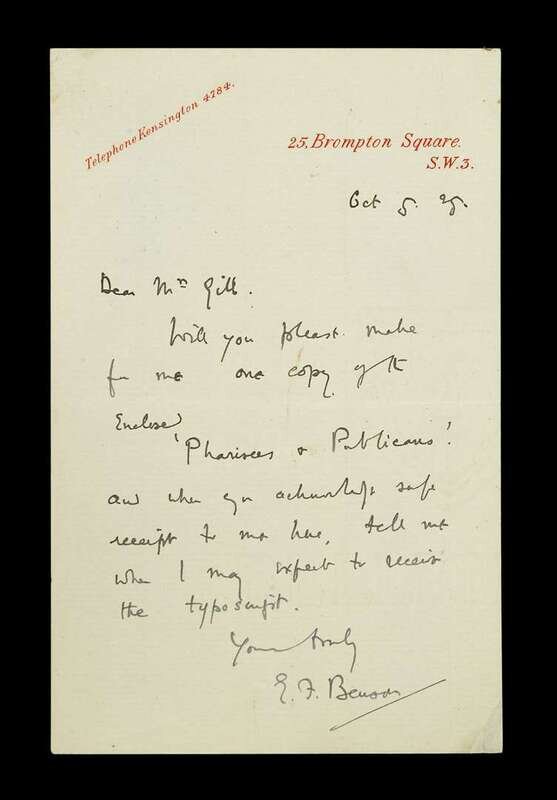 Telephone Kensington 4784.
25, Brompton Square.
S.W.3.
Oct 5. 25.
Dear Mrs Gill.
Will you please make
for me one copy of the
Enclosed
'Pharisees & Publicans'.
and when you acknowledge safe
receipt to me here, tell me
when I may expect to receive
the typoscript.
Yours truly
E. F. Benson